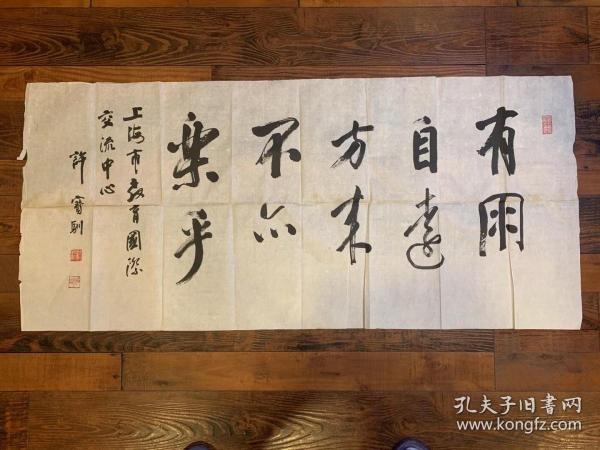 有朋
自遠
方来
不亦
樂乎
上海市教育國際
交流中心
許寶馴
孔夫子旧书网
www.kongfz.com